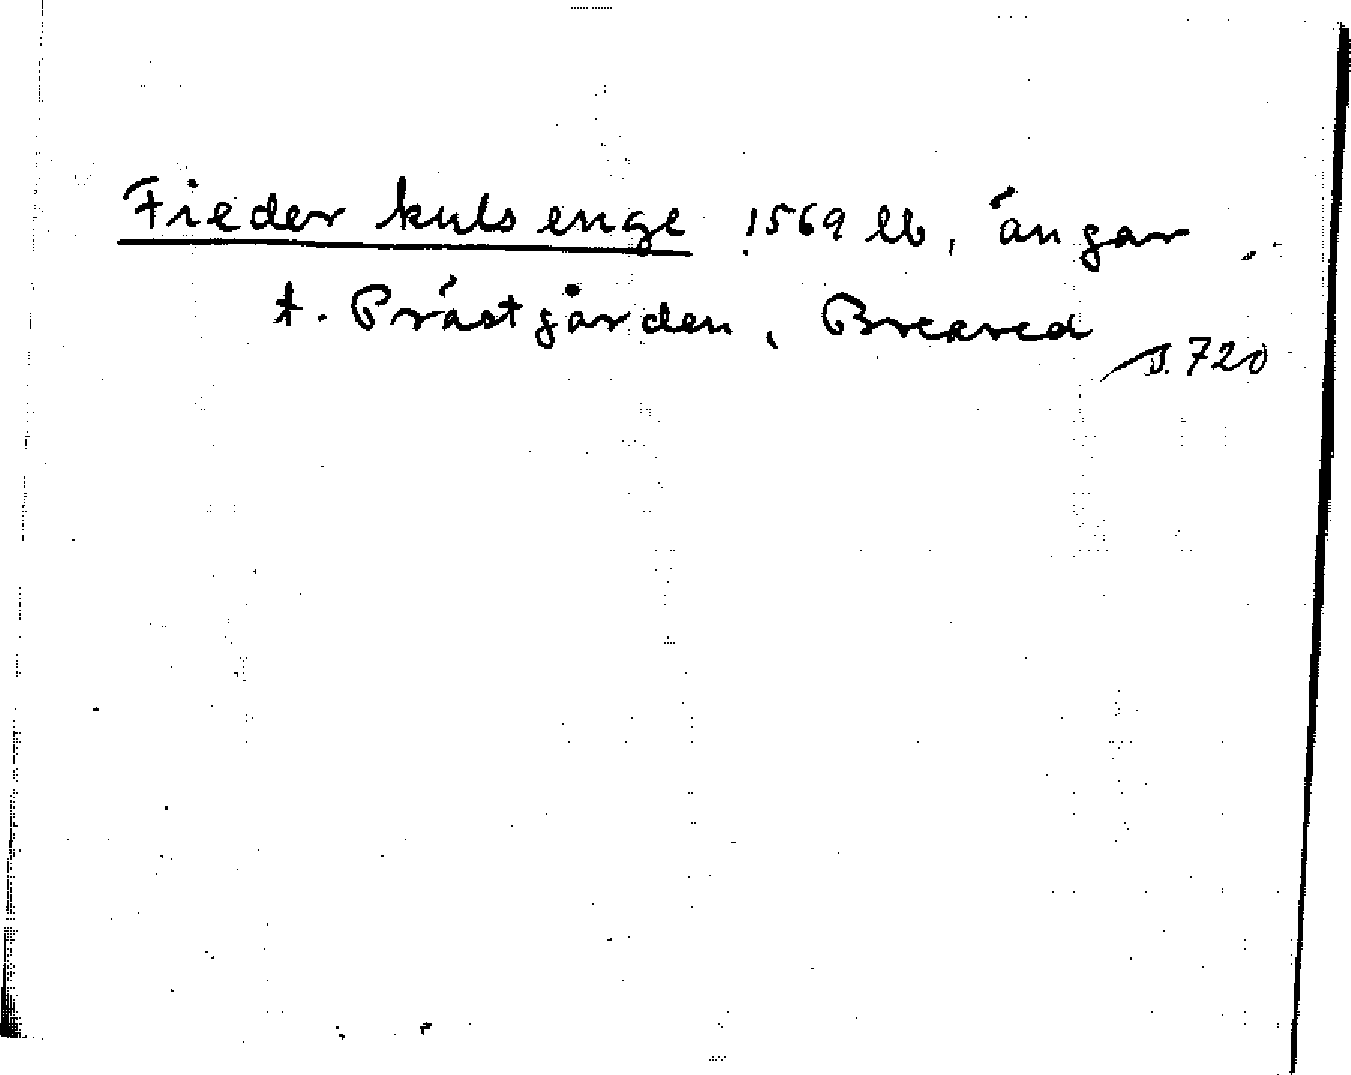 Fieder kuls enge 1569 lb, ängar
t. Prästgården, Breared
s. 720